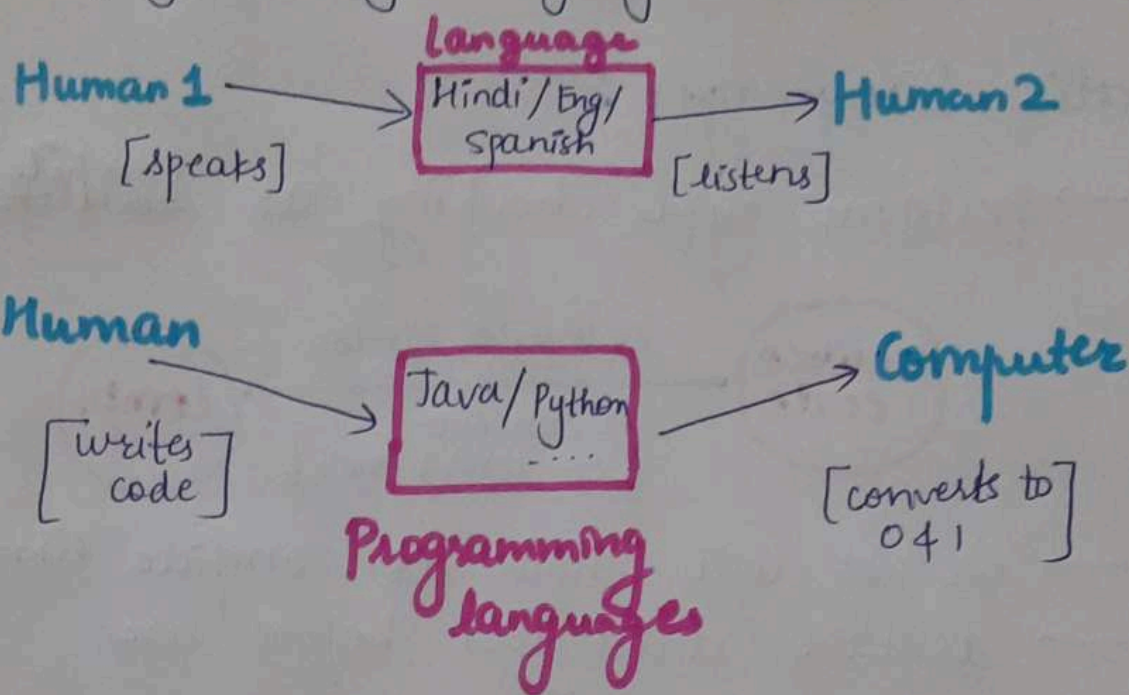 language
Human 1
Hindi/Eng/
spanish
Human 2
[speaks]
[listens]
Human
Java/Python
....
Computer
[writes
code]
[converts to
0 & 1]
Programming
languages